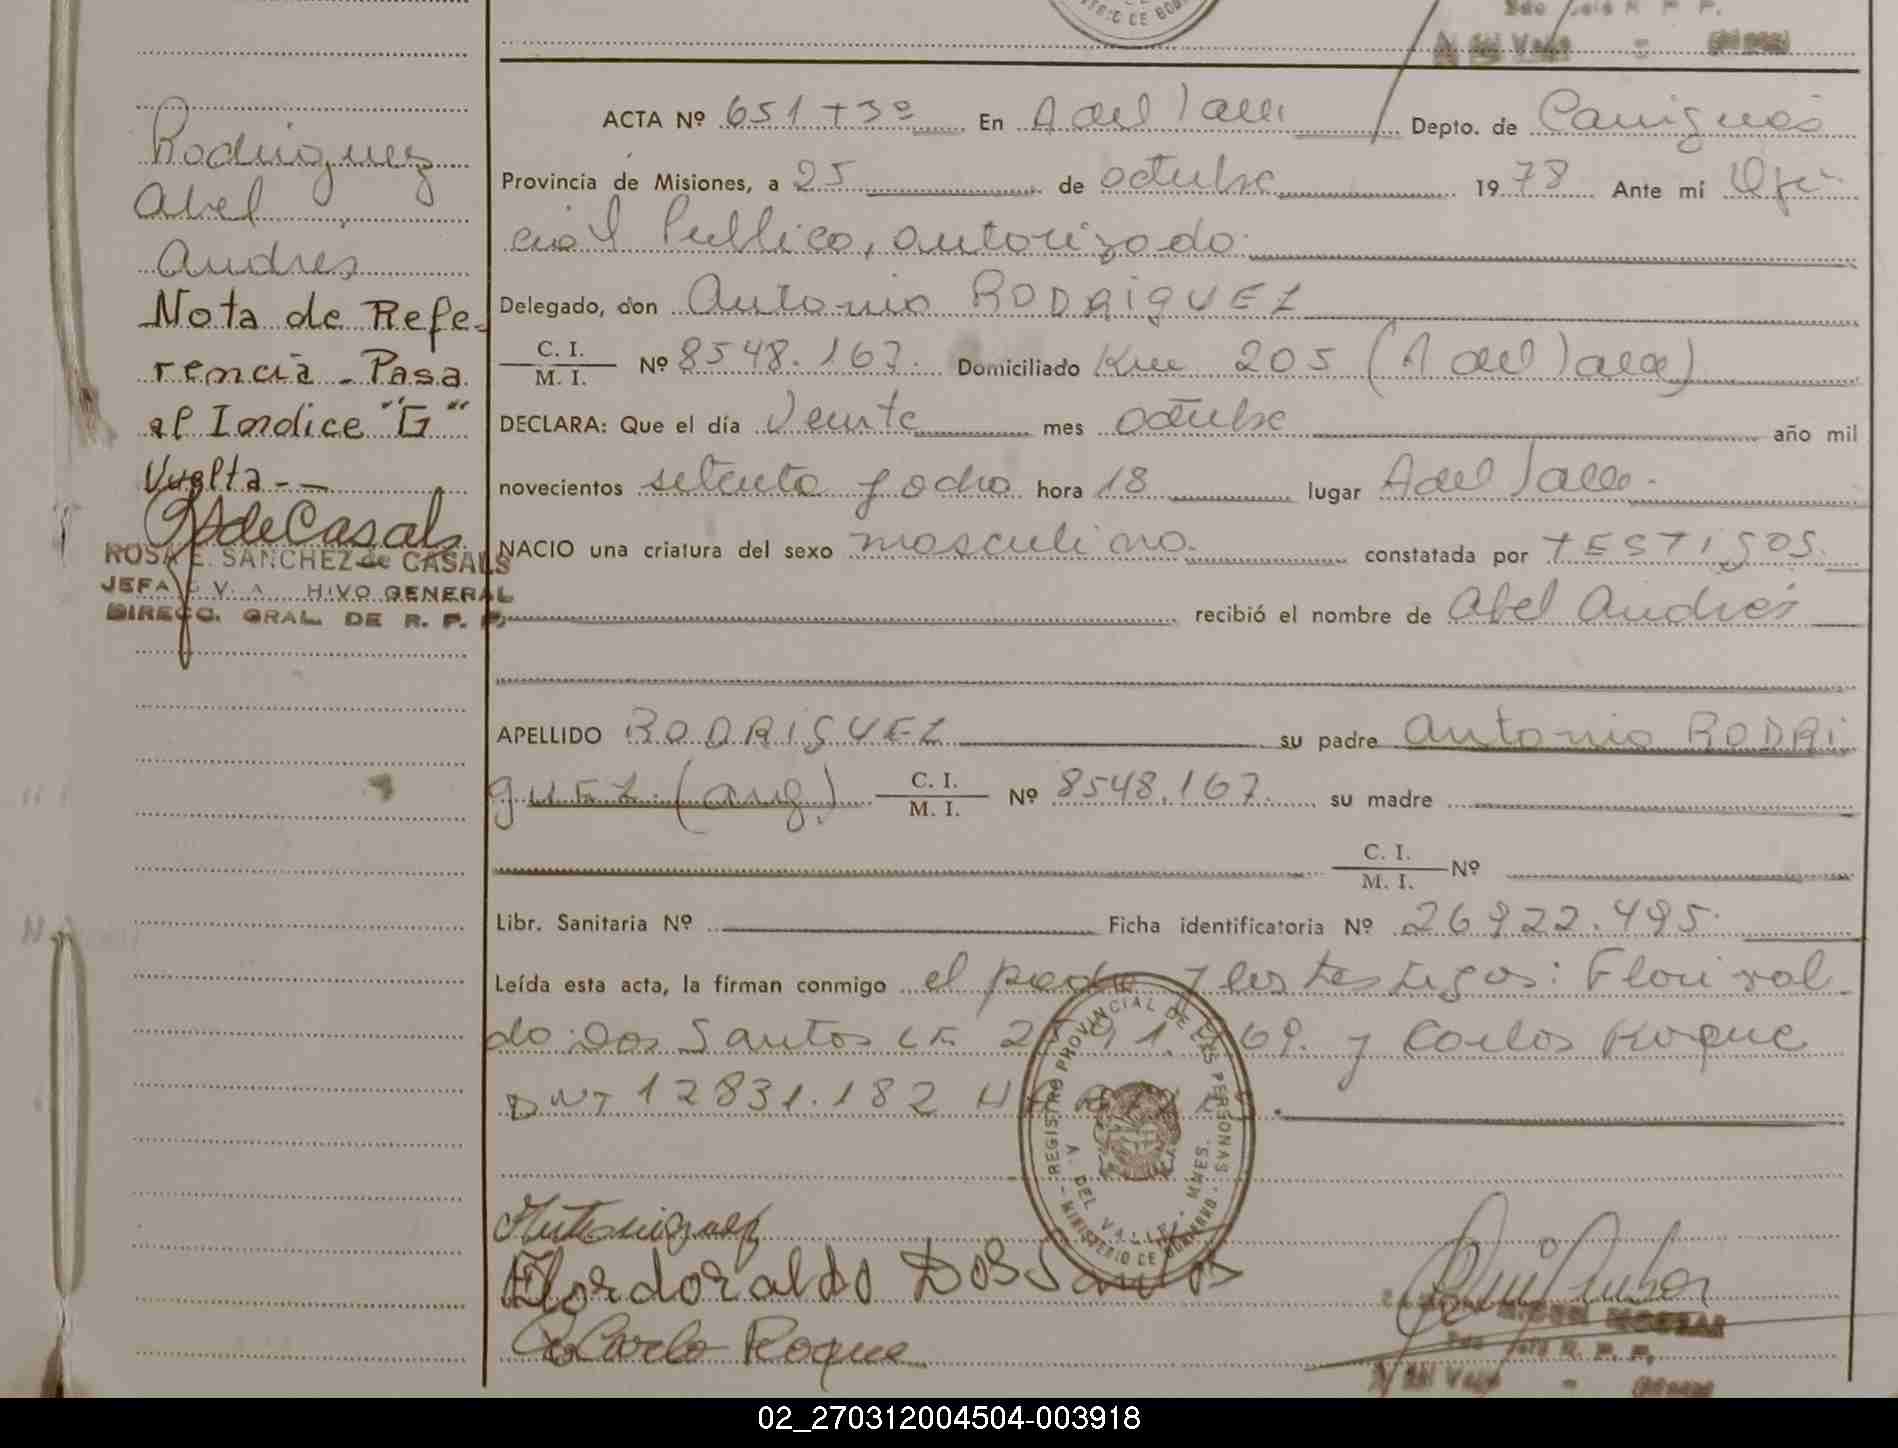 Rodriguez
Abel
Andres
Nota de Refe-
rencia - Pasa
al Indice "G"
Vuelta - -
RdeCasals
ROSA E. SANCHEZ de CASALS
JEFA HIVO GENERAL
DIRECC. GRAL. DE R. P. P.
ACTA Nº 651 T 3º En A del Valle Depto. de Cainguás
Provincia de Misiones, a 25 de octubre 1978 Ante mi Ofi-
cial Publico, autorizado
Delegado, don Antonio RODRIGUEZ
C. I.
M. I. Nº 8548.167. Domiciliado Km 205 (A del Valle)
DECLARA: Que el día Veinte mes octubre año mil
novecientos setenta y ocho hora 18 lugar A del Valle.
NACIO una criatura del sexo masculino. constatada por TESTIGOS.
recibió el nombre de Abel Andrés
APELLIDO RODRIGUEZ su padre Antonio RODRI
GUEZ (arg.) C. I.
M. I. Nº 8548.167. su madre
C. I.
M. I. Nº
Libr. Sanitaria Nº Ficha identificatoria Nº 26922.495.
Leída esta acta, la firman conmigo el padre y los testigos: Florival
do Dos Santos y Carlos Roque
DNI 12831.182
REGISTRO PROVINCIAL DE LAS PERSONAS
A. DEL VALLE - MNES.
MINISTERIO DE GOBIERNO
Flordoraldo Dos Santos
Carlo Roque
02_270312004504-003918